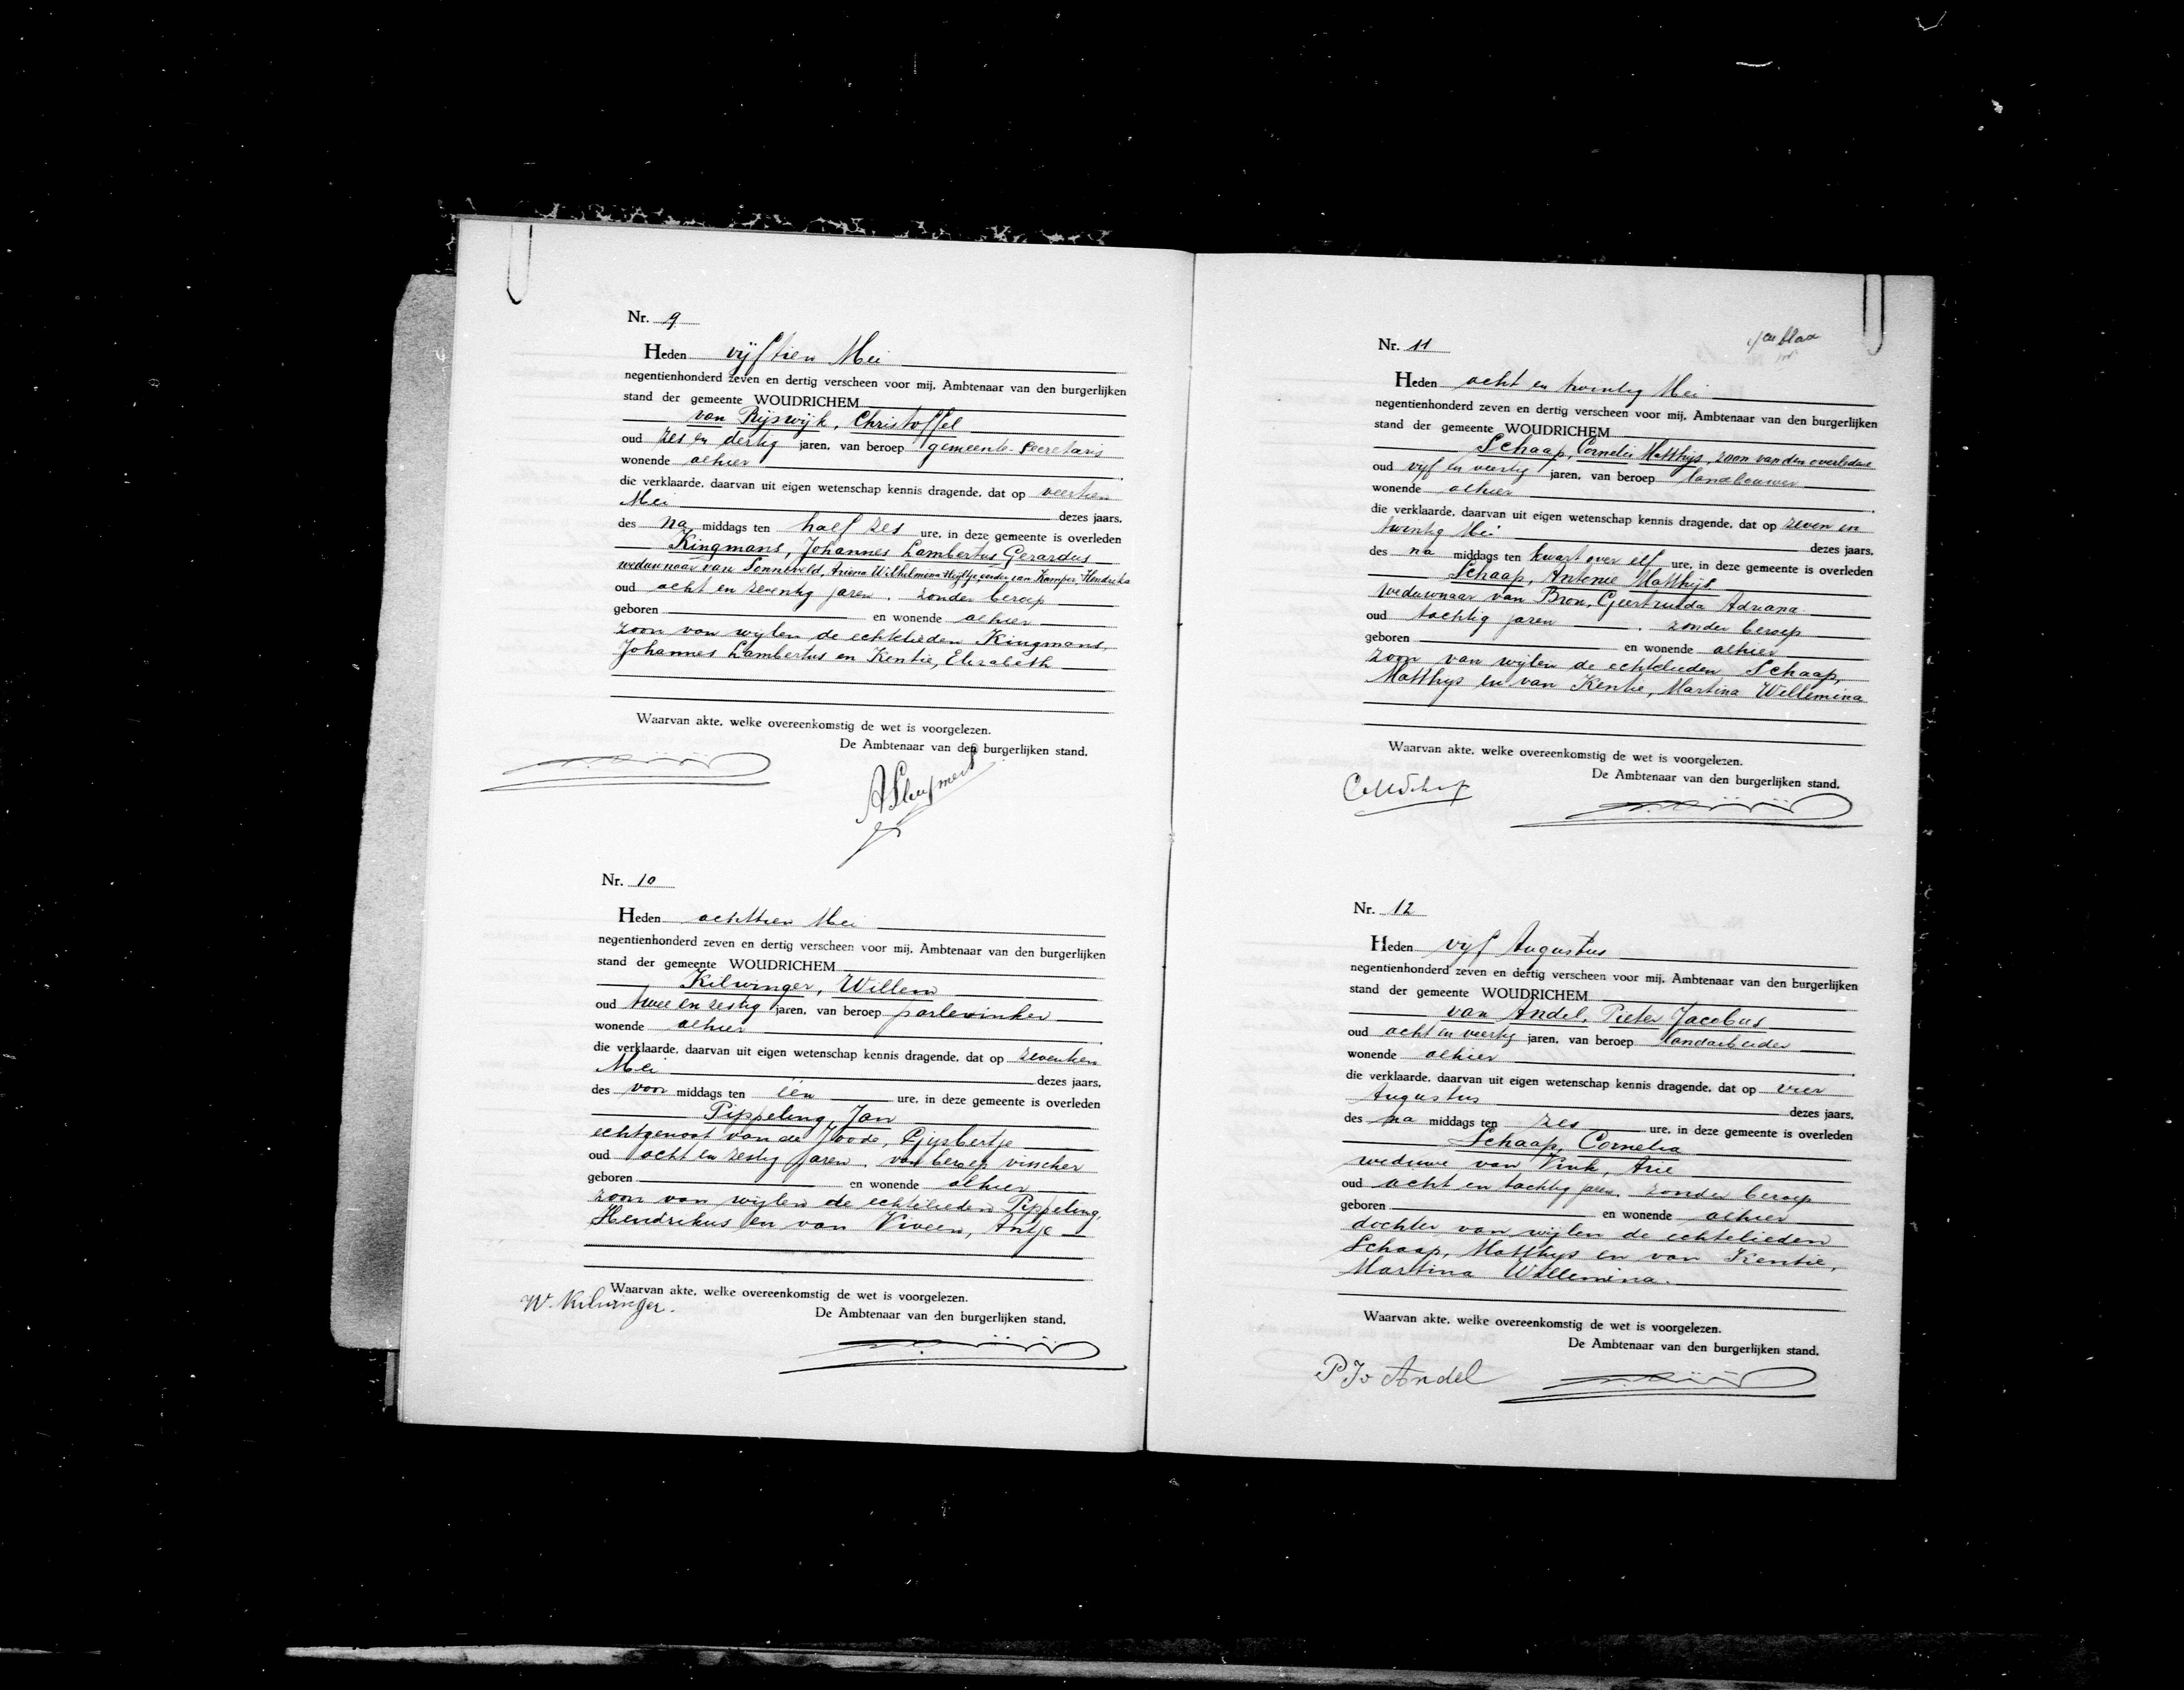 Nr. 9
Heden vijftien Mei
negentienhonderd zeven en dertig verscheen voor mij, Ambtenaar van den burgerlijken
stand der gemeente WOUDRICHEM
van Rijswijk, Christoffel
oud zes en dertig jaren, van beroep gemeente-secretaris
wonende alhier
die verklaarde, daarvan uit eigen wetenschap kennis dragende, dat op veertien
Mei dezes jaars,
des na middags ten half zes ure, in deze gemeente is overleden
Kingmans, Johannes Lambertus Gerardus
weduwnaar van Sonneveld, Ariena Wilhelmina en van Kamper, Hendrika
oud acht en zeventig jaren, zonder beroep
geboren en wonende alhier
zoon van wijlen de echtelieden Kingmans,
Johannes Lambertus en Kentie, Elizabeth
Waarvan akte, welke overeenkomstig de wet is voorgelezen.
De Ambtenaar van den burgerlijken stand,
Nr. 10
Heden achttien Mei
negentienhonderd zeven en dertig verscheen voor mij, Ambtenaar van den burgerlijken
stand der gemeente WOUDRICHEM
Kilwinger, Willem
oud twee en zestig jaren, van beroep parlevinker
wonende alhier
die verklaarde, daarvan uit eigen wetenschap kennis dragende, dat op zeventien
Mei dezes jaars,
des voor middags ten één ure, in deze gemeente is overleden
Pippeling, Jan
echtgenoot van de Joode, Gijsbertje
oud acht en zestig jaren, van beroep visscher
geboren en wonende alhier
zoon van wijlen de echtelieden Pippeling,
Hendrikus en van Viveen, Antje
Waarvan akte, welke overeenkomstig de wet is voorgelezen.
W. Kilwinger.
De Ambtenaar van den burgerlijken stand,
Nr. 11
Heden acht en twintig Mei
negentienhonderd zeven en dertig verscheen voor mij, Ambtenaar van den burgerlijken
stand der gemeente WOUDRICHEM
Schaap, Cornelis Matthijs, zoon van den overledene
oud vijf en veertig jaren, van beroep landbouwer
wonende alhier
die verklaarde, daarvan uit eigen wetenschap kennis dragende, dat op zeven en
twintig Mei dezes jaars,
des na middags ten kwart over elf ure, in deze gemeente is overleden
Schaap, Antonie Matthijs
weduwnaar van Bron, Geertruida Adriana
oud tachtig jaren, zonder beroep
geboren en wonende alhier
zoon van wijlen de echtelieden Schaap,
Matthijs en van Kentie, Martina Willemina
Waarvan akte, welke overeenkomstig de wet is voorgelezen.
De Ambtenaar van den burgerlijken stand,
Nr. 12
Heden vijf Augustus
negentienhonderd zeven en dertig verscheen voor mij, Ambtenaar van den burgerlijken
stand der gemeente WOUDRICHEM
van Andel, Pieter Jacobus
oud acht en veertig jaren, van beroep landarbeider
wonende alhier
die verklaarde, daarvan uit eigen wetenschap kennis dragende, dat op vier
Augustus dezes jaars,
des na middags ten zes ure, in deze gemeente is overleden
Schaap, Cornelia
weduwe van Vink, Arie
oud acht en tachtig jaren, zonder beroep
geboren en wonende alhier
dochter van wijlen de echtelieden
Schaap, Matthijs en van Kentie,
Martina Willemina.
Waarvan akte, welke overeenkomstig de wet is voorgelezen.
De Ambtenaar van den burgerlijken stand,
P J v Andel